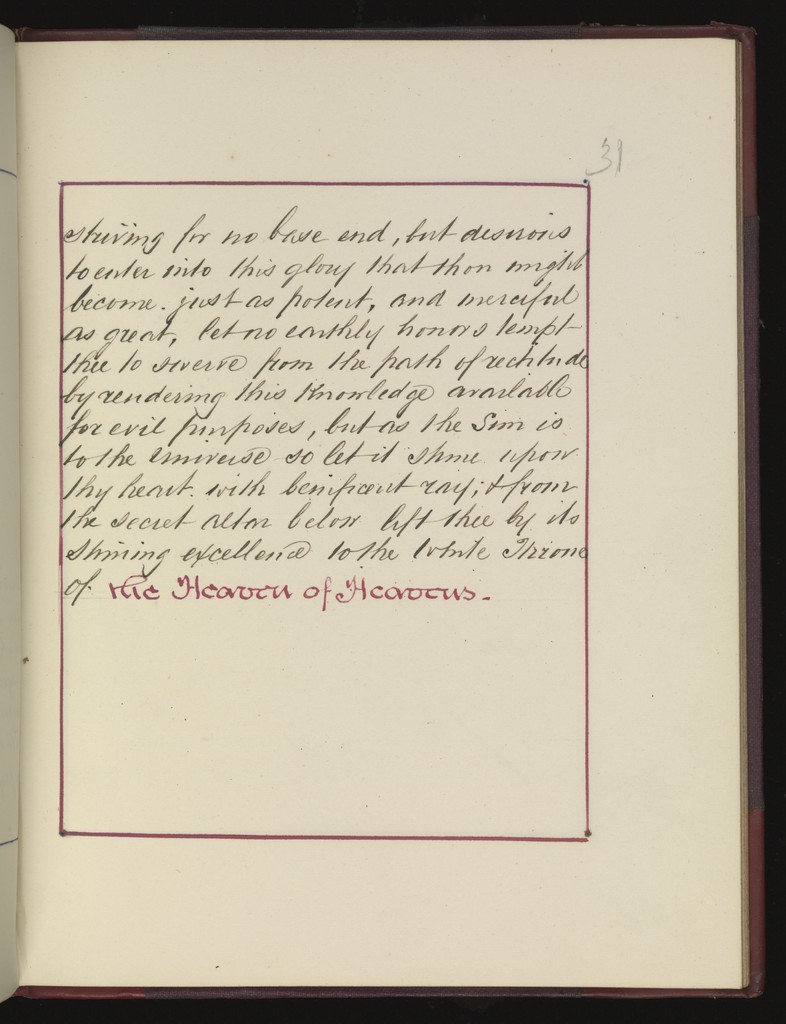 31
striving for no base end, but desirous
to enter into this glory that thou might
become. just as potent, and merciful
as great, let no earthly honors tempt
thee to swerve from the path of rectitude
by rendering this Knowledge available
for evil purposes, but as the Sun is
to the Universe so let it shine upon
thy heart. with benificent ray; & from
the secret altar below lift thee by its
shining excellence to the White Throne
of. the Heaven of Heavens.